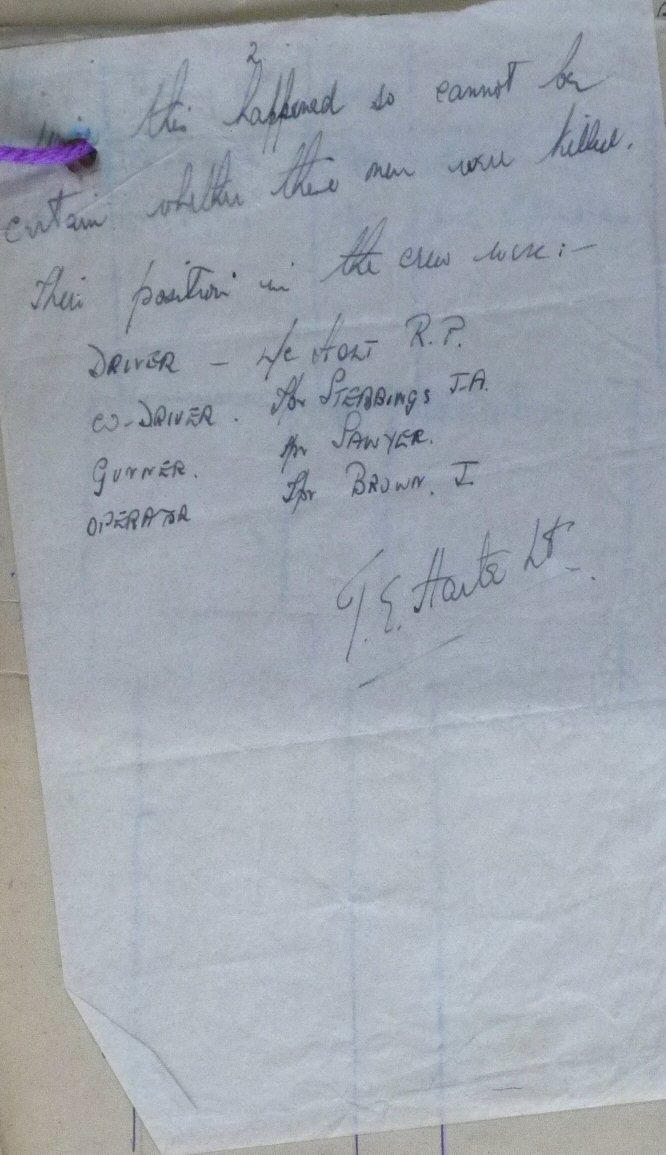 2
this happened so cannot be
certain whether these men were killed.
Their position in the crew were:-
DRIVER - L/C HOLT R.P.
CO-DRIVER. Tpr STEBBINGS J.A.
GUNNER. Tpr SAWYER.
OPERATOR Tpr BROWN. J
T.E. Harte Lt.